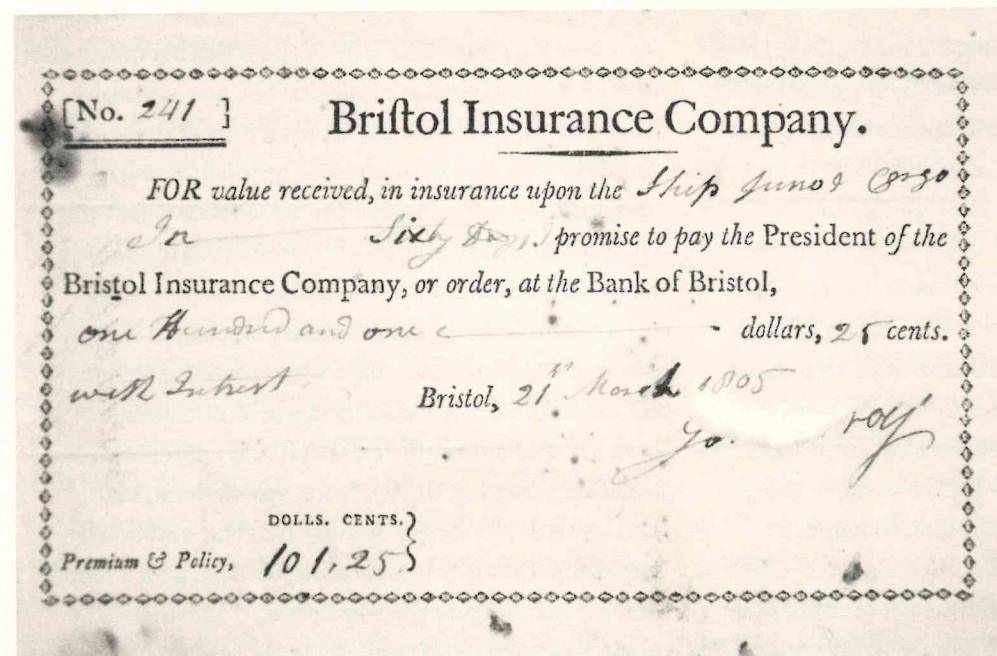 [No. 241 ]
Briſtol Insurance Company.
FOR value received, in insurance upon the Ship Juno & Cargo
In Sixty Days I promise to pay the President of the
Bristol Insurance Company, or order, at the Bank of Bristol,
one Hundred and one dollars, 25 cents.
with Intrest Bristol, 21st March 1805
DOLLS. CENTS.
Premium & Policy, 101,25